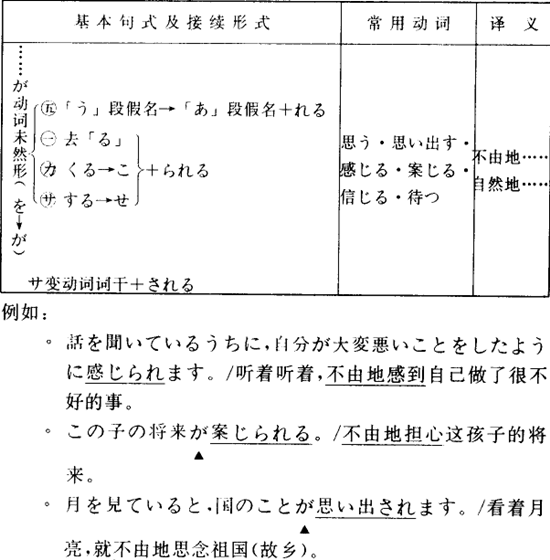 基本句式及接续形式 常用动词 译义
……が动词未然形(を→が)
㊄「う」段假名→「あ」段假名+れる
㊀ 去「る」
㋕ くる→こ
㋚ する→せ
+られる
サ变动词词干+される
思う・思い出す・
感じる・案じる・
信じる・待つ
不由地……
自然地……
例如:
。 話を聞いているうちに,自分が大変悪いことをしたよう
に感じられます。/听着听着,不由地感到自己做了很不
好的事。
。 この子の将来が案じられる。/不由地担心这孩子的将
▲
来。
。 月を見ていると,国のことが思い出されます。/看着月
▲
亮,就不由地思念祖国(故乡)。